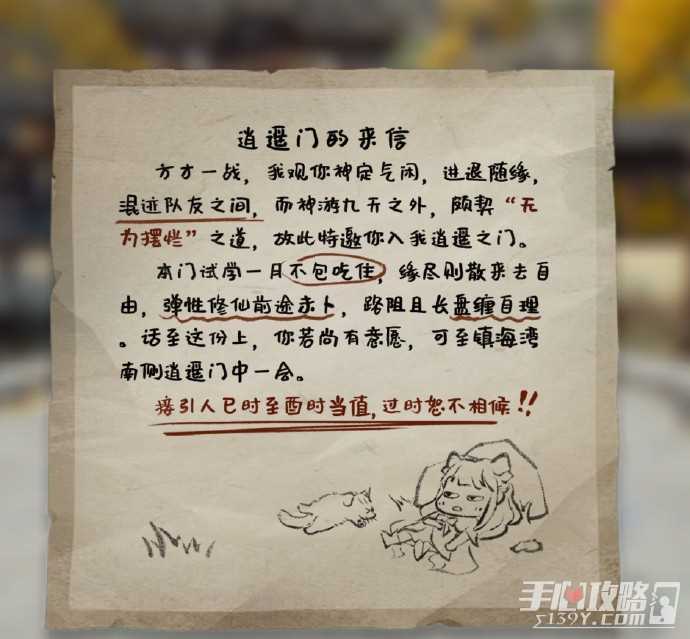 逍遥门的来信
方才一战，我观你神定气闲，进退随缘，
混迹队友之间，而神游九天之外，颇契“无
为摆烂”之道，故此特邀你入我逍遥之门。
本门试学一月不包吃住，缘尽则散来去自
由，弹性修仙前途未卜，路阻且长盘缠自理
。话至这份上，你若尚有意愿，可至镇海湾
南侧逍遥门中一会。
接引人巳时至酉时当值，过时恕不相候！！
手心攻略
s139Y.com